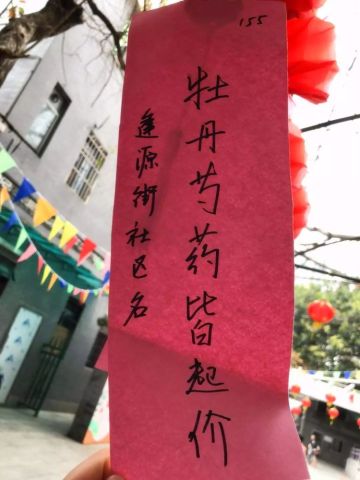 155
牡丹芍药皆起价
逢源街社区名